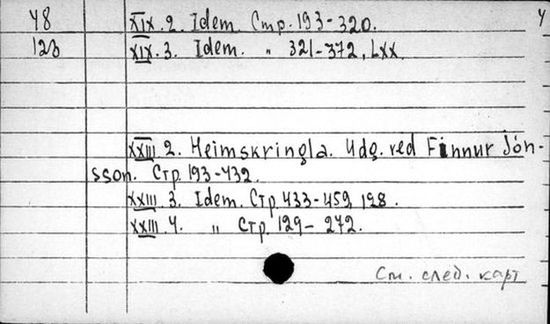 48 XIX. 2. Idem. Стр. 193-320. 4
123 XIX. 3. Idem. „ 321-372, LXX.
XXIII 2. Heimskringla. Udg. ved Finnur Jón-
sson. Стр. 193-432.
XXIII 3. Idem. Стр. 433-459, 128.
XXIII 4. „ Стр. 129-272.
См. след. карт